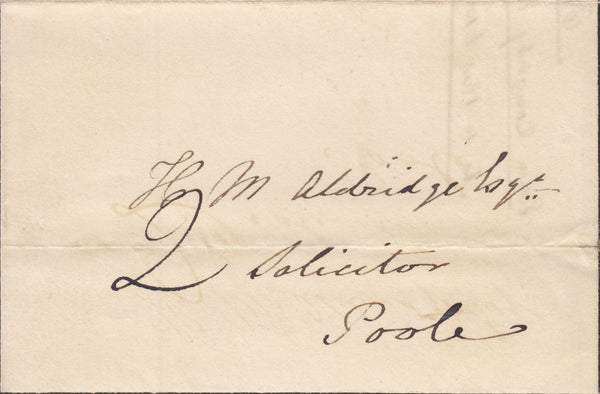 H M Aldridge Esqr
2 Solicitor
Poole